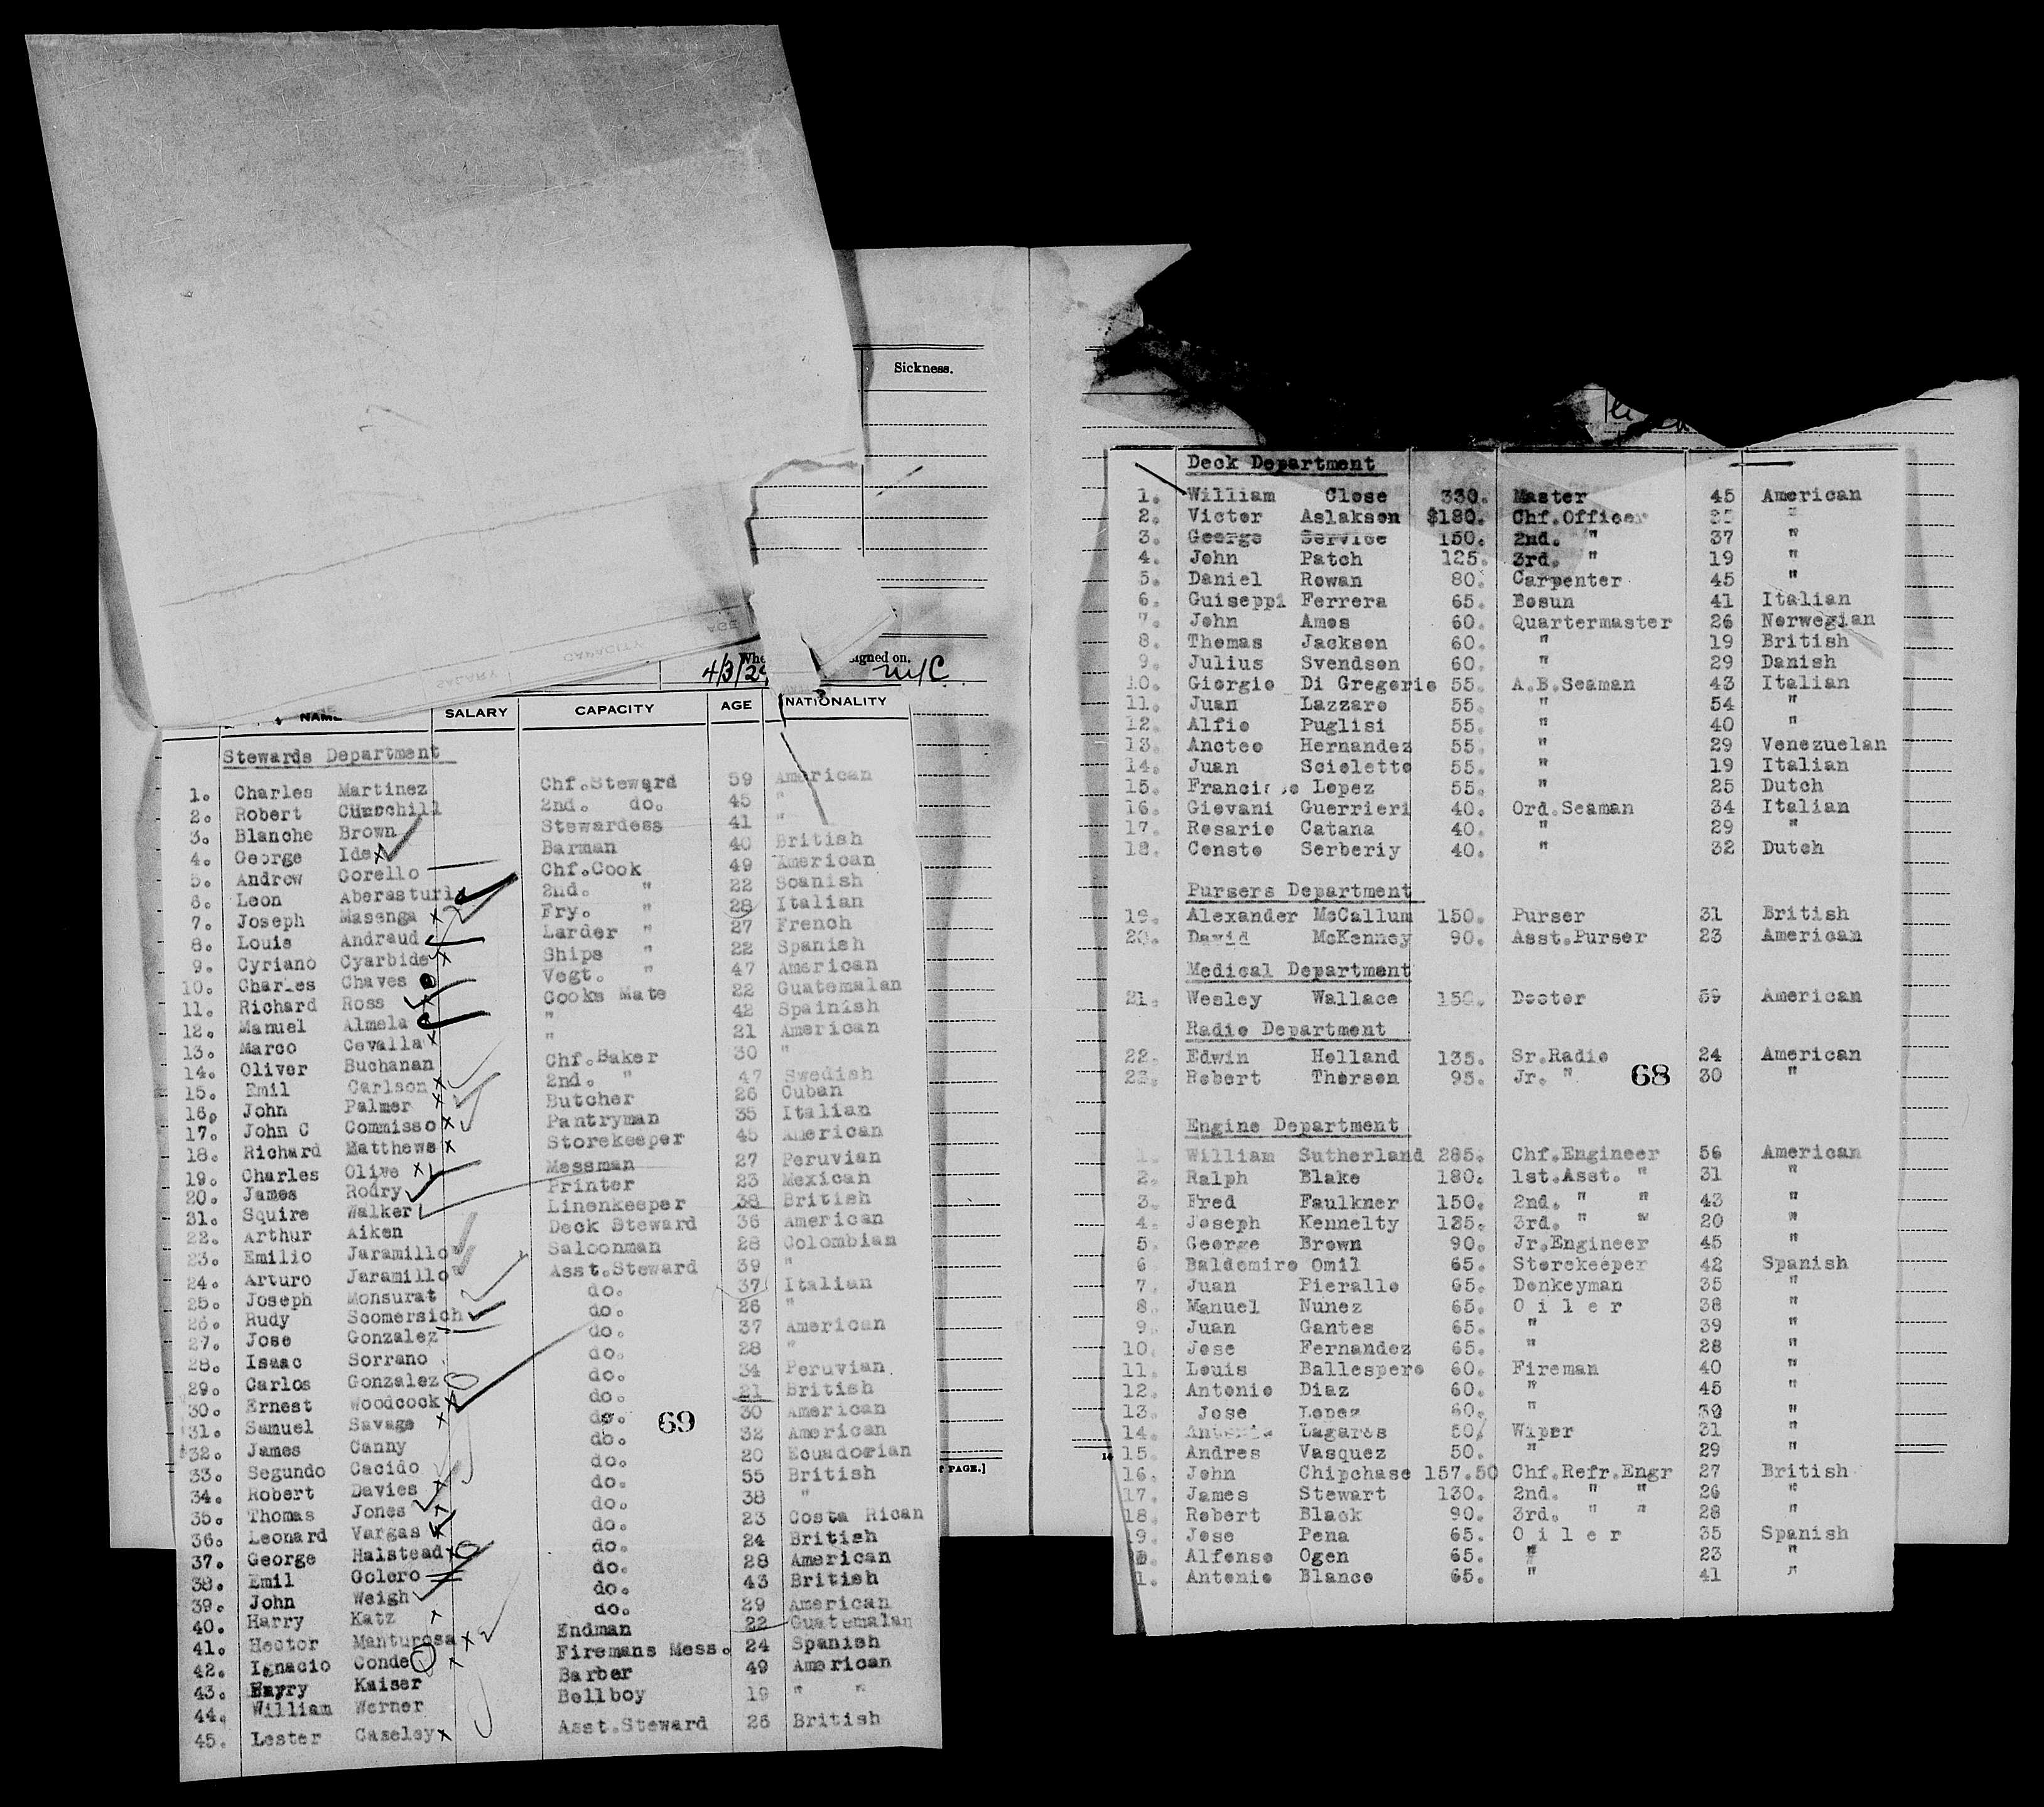 Sickness.
4/3/29
igned on,
SALARY CAPACITY AGE NATIONALITY
Stewards Department
1. Charles Martinez Chf.Steward 59 American
2. Robert 2nd. do. 45 "
3. Blanche Brown Stewardess 41 "
4. George Ide x Barman 40 British
5. Andrew Corello Chf.Cook 49 American
6. Leon Aberasturi 2nd. " 22 Spanish
7. Joseph Masenga x Fry. " 28 Italian
8. Louis Andraud Larder " 27 French
9. Cyriano Cyarbide x Ships " 22 Spanish
10. Charles Chaves Vegt. " 47 American
11. Richard Ross Cooks Mate 22 Guatemalan
12. Manuel Almela " 42 Spainish
13. Marco Cevalla x " 21 American
14. Oliver Buchanan Chf.Baker 30 "
15. Emil Carlson x 2nd. " 47 Swedish
16. John Palmer x Butcher 26 Cuban
17. John C Commisso x Pantryman 35 Italian
18. Richard Matthews x Storekeeper 45 American
19. Charles Olive x Messman 27 Peruvian
20. James Rodry Printer 23 Mexican
21. Squire Walker Linenkeeper 38 British
22. Arthur Aiken Deck Steward 36 American
23. Emilio Jaramillo Saloonman 28 Colombian
24. Arturo Jaramillo Asst.Steward 39 "
25. Joseph Monsurat do. 37 Italian
26. Rudy Scomersich do. 26 "
27. Jose Gonzalez do. 37 American
28. Isaac Sorrano do. 28 "
29. Carlos Gonzalez do. 34 Peruvian
30. Ernest Woodcock x do. 21 British
31. Samuel Savage x do. 30 American
69
32. James Canny do. 32 American
33. Segundo Cacido do. 20 Ecuadorian
34. Robert Davies x do. 55 British
35. Thomas Jones x do. 38 "
36. Leonard Vargas do. 23 Costa Rican
37. George Halstead x do. 24 British
38. Emil Golero do. 28 American
39. John Weigh do. 43 British
40. Harry Katz do. 29 American
41. Hector Manturosa x Endman 22 Guatemalan
42. Ignacio Conde x Firemans Mess. 24 Spanish
43. Harry Kaiser Barber 49 American
44. William Werner Bellboy 19 " "
45. Lester Cazeley x Asst.Steward 26 British
PAGE.]
Deck Department
1. William Close 330. Master 45 American
2. Victor Aslakson $180. Chf.Officer 35 "
3. George Service 150. 2nd. " 37 "
4. John Patch 125. 3rd. " 19 "
5. Daniel Rowan 80. Carpenter 45 "
6. Guiseppi Ferrera 65. Bosun 41 Italian
7. John Amos 60. Quartermaster 26 Norwegian
8. Thomas Jackson 60. " 19 British
9. Julius Svendson 60. " 29 Danish
10. Giorgio Di Gregorio 55. A.B.Seaman 43 Italian
11. Juan Lazzaro 55. " 54 "
12. Alfio Puglisi 55. " 40 "
13. Anoteo Hernandez 55. " 29 Venezuelan
14. Juan Scioletto 55. " 19 Italian
15. Francisco Lopez 55. " 25 Dutch
16. Giovani Guerrieri 40. Ord.Seaman 34 Italian
17. Rosario Catana 40. " 29 "
18. Consto Serberiy 40. " 32 Dutch
Pursers Department
19. Alexander McCallum 150. Purser 31 British
20. David McKenney 90. Asst.Purser 23 American
Medical Department
21. Wesley Wallace 150. Doctor 59 American
Radio Department
22. Edwin Holland 135. Sr.Radio 24 American
23. Robert Thorson 95. Jr. " 30 "
68
Engine Department
1. William Sutherland 285. Chf.Engineer 56 American
2. Ralph Blake 180. 1st.Asst. " 31 "
3. Fred Faulkner 150. 2nd. " " 43 "
4. Joseph Kennelty 125. 3rd. " " 20 "
5. George Brown 90. Jr.Engineer 45 "
6. Baldomiro Omil 65. Storekeeper 42 Spanish
7. Juan Pierallo 65. Donkeyman 35 "
8. Manuel Nunez 65. Oiler 38 "
9. Juan Gantes 65. " 39 "
10. Jose Fernandez 65. " 28 "
11. Louis Ballespero 60. Fireman 40 "
12. Antonio Diaz 60. " 45 "
13. Jose Lopez 60. " 30 "
14. Antonio Lagares 50/ Wiper 31 "
15. Andres Vasquez 50. " 29 "
16. John Chipchase 157.50 Chf.Refr.Engr 27 British
17. James Stewart 130. 2nd. " " 26 "
18. Robert Black 90. 3rd. " " 28 "
19. Jose Pena 65. Oiler 35 Spanish
Alfonso Ogen 65. " 23 "
1. Antonio Blanco 65. " 41 "